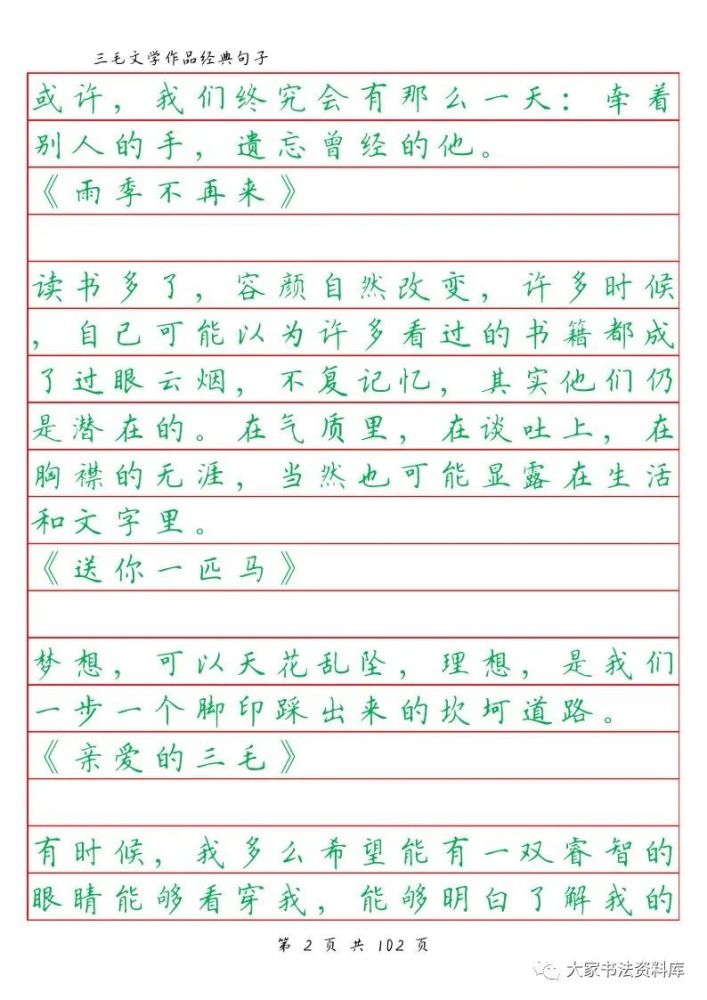 三毛文学作品经典句子
或许，我们终究会有那么一天：牵着
别人的手，遗忘曾经的他。
《雨季不再来》
读书多了，容颜自然改变，许多时候
，自己可能以为许多看过的书籍都成
了过眼云烟，不复记忆，其实他们仍
是潜在的。在气质里，在谈吐上，在
胸襟的无涯，当然也可能显露在生活
和文字里。
《送你一匹马》
梦想，可以天花乱坠，理想，是我们
一步一个脚印踩出来的坎坷道路。
《亲爱的三毛》
有时候，我多么希望能有一双睿智的
眼睛能够看穿我，能够明白了解我的
第 2 页 共 102 页
大家书法资料库